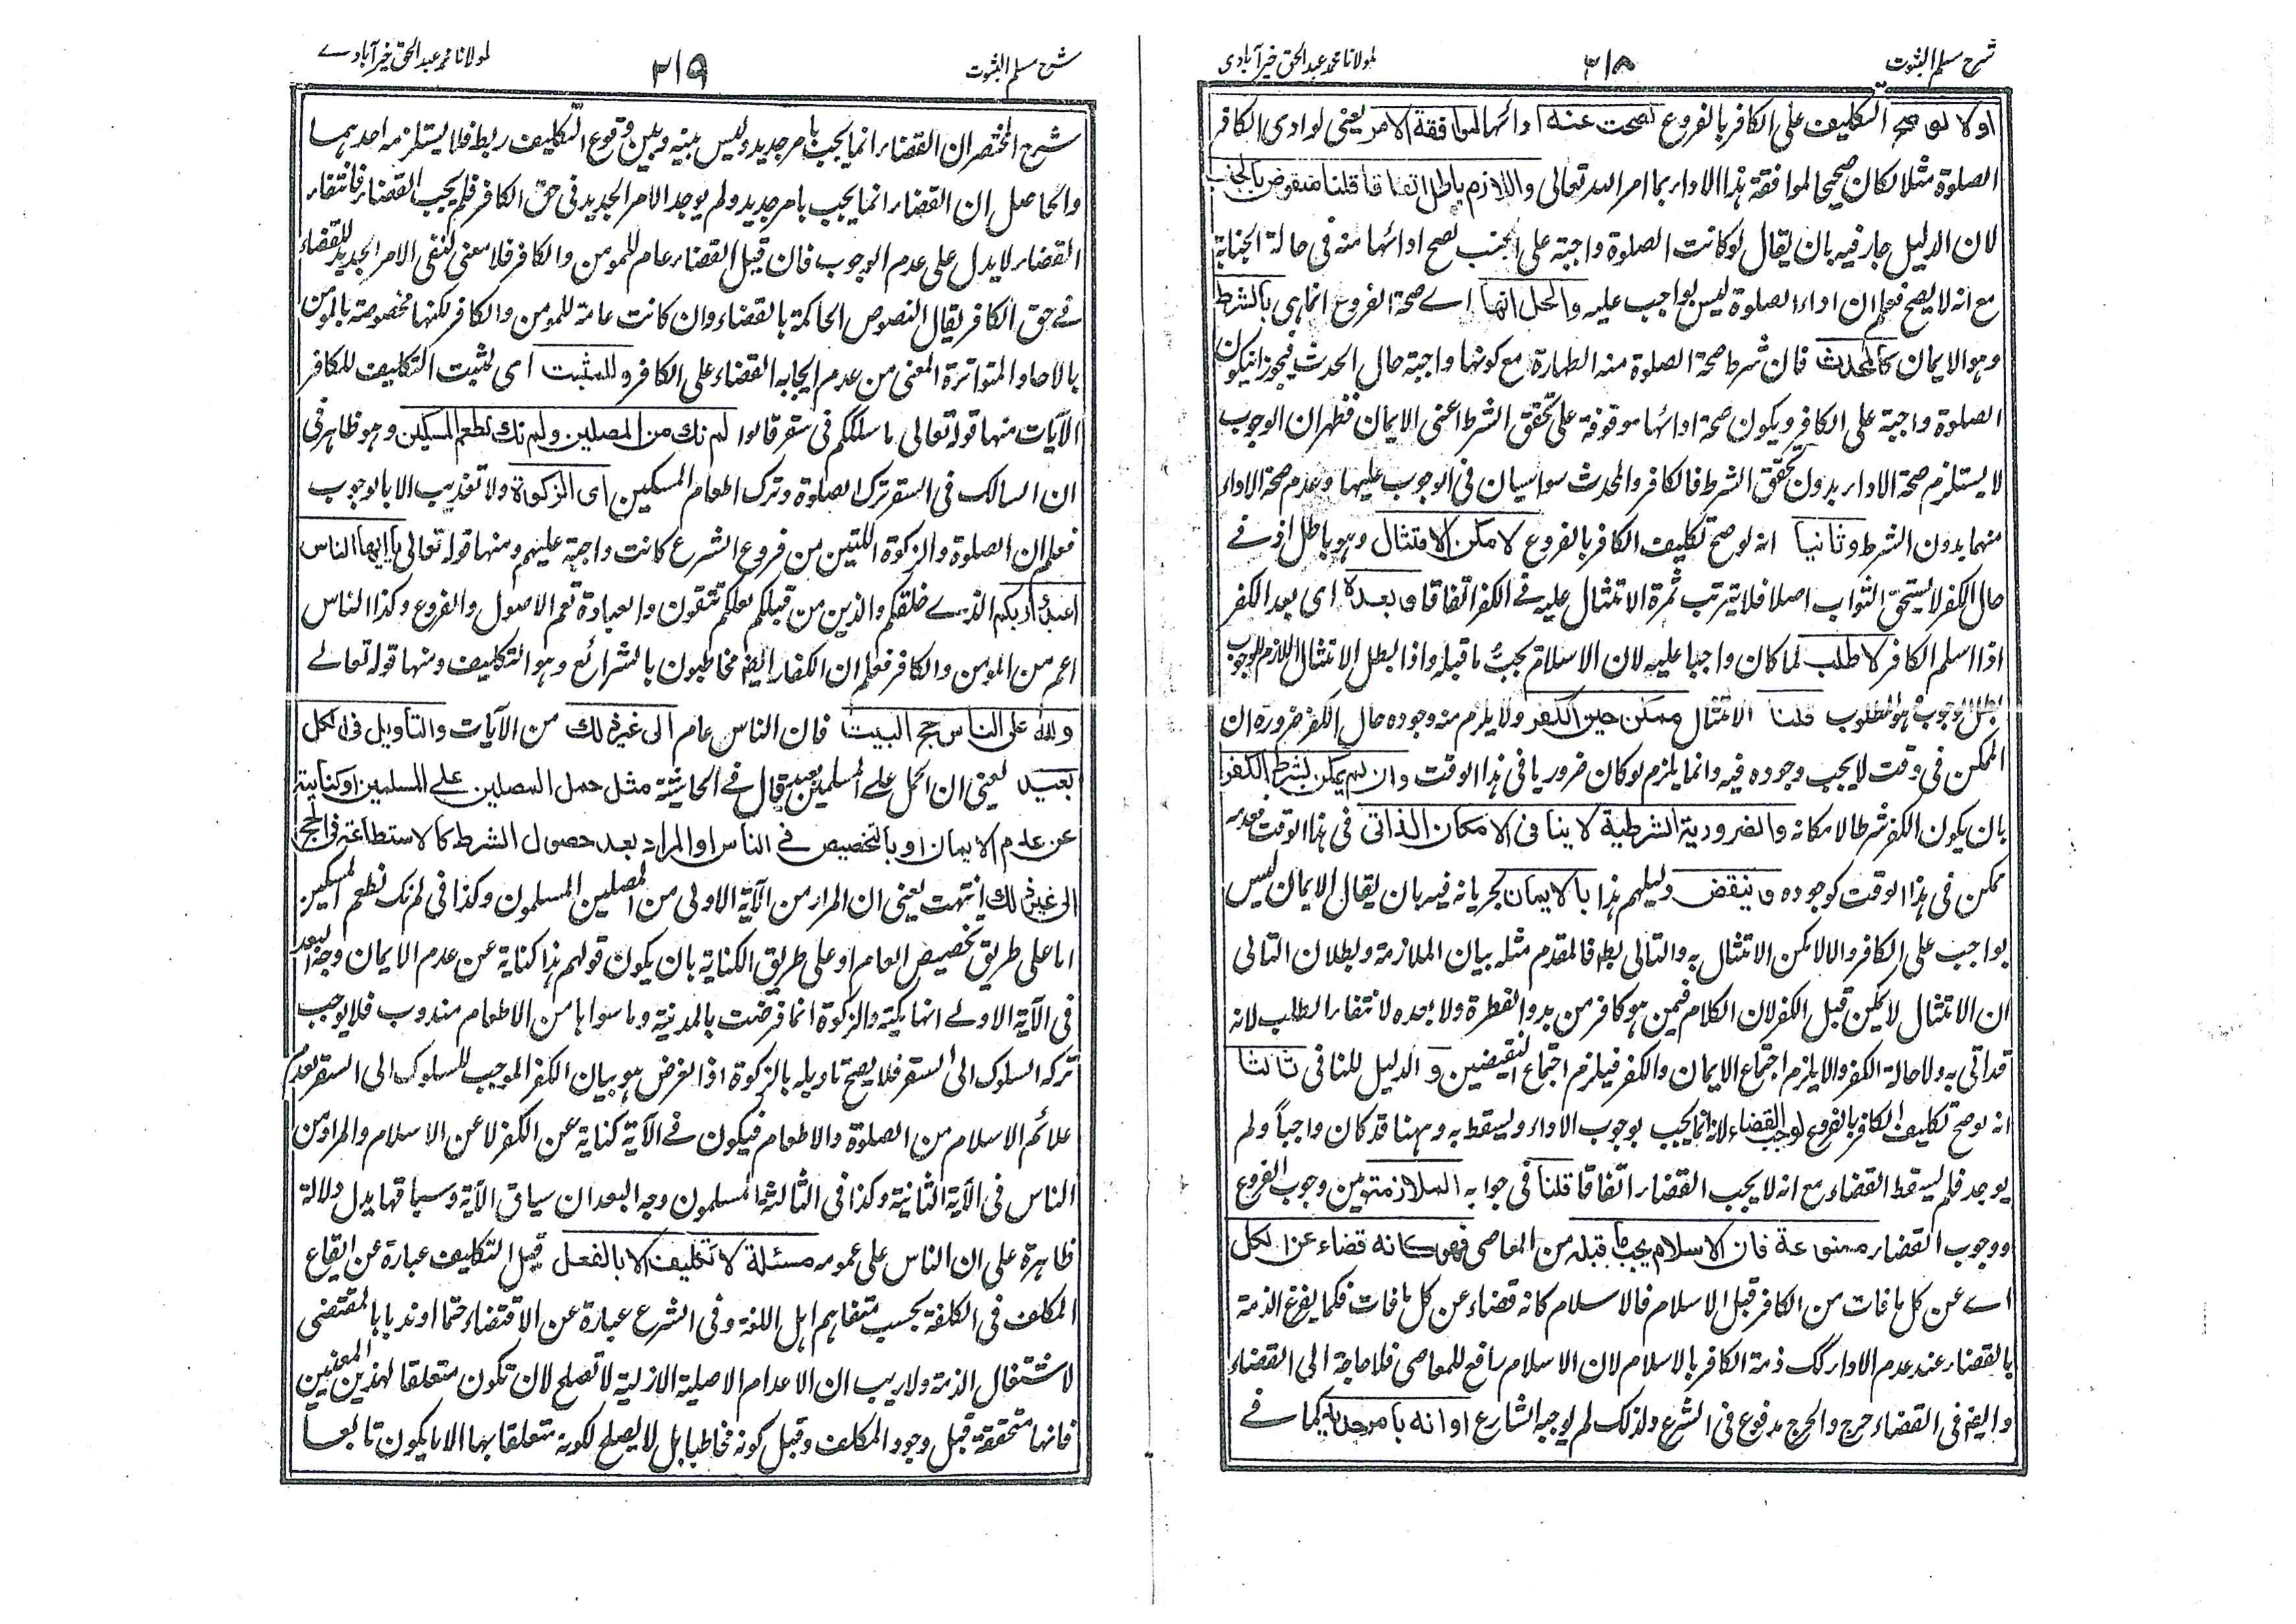 شرح مسلم الثبوت
٣١٨
لمولانا محمد عبدالحق خيرآبادی
اولا لو صح التكليف علی الكافر بالفروع لصحت عنه ادائها لموافقة الامر يعنی لو ادی الكافر
الصلوة مثلا لكان صحيحا لموافقة هذا الاداء بما امر الله تعالی واللازم باطل اتفاقا قلنا منقوض بالجنب
لان الدليل جار فيه بان يقال لو كانت الصلوة واجبة علی الجنب لصح ادائها منه فی حالة الجنابة
مع انه لا يصح فعلم ان اداء الصلوة ليس بواجب عليه والحل انها اے صحة الفروع انما هی بالشرط
وهو الايمان كالمحدث فان شرط صحة الصلوة منه الطهارة مع كونها واجبة حال الحدث فيجوز ان يكون
الصلوة واجبة علی الكافر ويكون صحة ادائها موقوفة علی تحقق الشرط اعنی الايمان فظهر ان الوجوب
لا يستلزم صحة الاداء بدون تحقق الشرط فالكافر والمحدث سواسيان فی الوجوب عليهما وعدم صحة الاداء
منهما بدون الشرط وثانيا انه لو صح تكليف الكافر بالفروع لامكن الامتثال وهو باطل اذ فے
حال الكفر لا يستحق الثواب اصلا فلا يترتب ثمرة الامتثال عليه فے الكفر اتفاقا وبعده ای بعد الكفر
اذا اسلم الكافر لا طلب لما كان واجبا عليه لان الاسلام يجبّ ما قبله واذا بطل الامتثال اللازم للوجوب
بطل الوجوب وهو المطلوب قلنا الامتثال ممكن حين الكفر ولا يلزم منه وجوده حال الكفر ضرورة ان
الممكن فی وقت لا يجب وجوده فيه وانما يلزم لو كان ضروريا فی هذا الوقت وان لم يكن بشرط الكفر
بان يكون الكفر شرطا لامكانه والضرورية الشرطية لا ينافی الامكان الذاتی فی هذا الوقت فعدمه
ممكن فی هذا الوقت كوجوده وينقض دليلهم هذا بالايمان لجريانه فيه بان يقال الايمان ليس
بواجب علی الكافر والا لامكن الامتثال به والتالی بط فالمقدم مثله بيان الملازمة وبطلان التالی
ان الامتثال لا يمكن قبل الكفر لان الكلام فيمن هو كافر من بدو الفطرة ولا بعده لانتفاء الطلب لانه
قد اتی به ولا حالة الكفر والا يلزم اجتماع الايمان والكفر فيلزم اجتماع النقيضين و الدليل للنافی ثالثا
انه لو صح تكليف الكافر بالفروع لوجب القضاء لانه انما يجب بوجوب الاداء ويسقط به وههنا قد كان واجباً ولم
يوجد فلم يسقط القضاء مع انه لا يجب القضاء اتفاقا قلنا فی جوابه الملازمة بين وجوب الفروع
ووجوب القضاء ممنوعة فان الاسلام يجب ما قبله من المعاصی فهو كانه قضاء عن الكل
اے عن كل ما فات من الكافر قبل الاسلام فالاسلام كانه قضاء عن كل ما فات فكما يفرغ الذمة
بالقضاء عند عدم الاداء كك ذمة الكافر بالاسلام لان الاسلام رافع للمعاصی فلا حاجة الی القضاء
وايضا فی القضاء حرج والحرج مدفوع فی الشرع ولذلك لم يوجبه الشارع او انه بامر جديد كما فے
شرح مسلم الثبوت
٣١٩
لمولانا محمد عبدالحق خيرآبادے
شرح المختصر ان القضاء انما يجب بامر جديد وليس بينه وبين وقوع التكليف ربط فلا يستلزمه احدهما
والحاصل ان القضاء انما يجب بامر جديد ولم يوجد الامر الجديد فی حق الكافر فلم يجب القضاء فانتفاء
القضاء لا يدل علی عدم الوجوب فان قيل القضاء عام للمومن والكافر فلا معنی لنفی الامر الجديد للقضاء
فے حق الكافر يقال النصوص الحاكمة بالقضاء وان كانت عامة للمومن والكافر لكنها مخصوصة بالمومن
بالاحاد المتواترة المعنی من عدم ايجابه القضاء علی الكافر وللمثبت ای لمثبت التكليف للكافر
الآيات منها قوله تعالی ما سلككم فی سقر قالوا لم نك من المصلين ولم نك نطعم المسكين وهو ظاهر فی
ان السالك فی السقر ترك الصلوة وترك اطعام المسكين ای الزكوة ولا تعذيب الا بالوجوب
فعلم ان الصلوة والزكوة اللتين من فروع الشرع كانت واجبة عليهم ومنها قوله تعالی يا ايها الناس
اعبدوا ربكم الذے خلقكم والذين من قبلكم لعلكم تتقون والعبادة تعم الاصول والفروع وكذا الناس
اعم من المومن والكافر فعلم ان الكفار ايضا مخاطبون بالشرائع وهو التكليف ومنها قوله تعالے
ولله علی الناس حج البيت فان الناس عام الی غير ذلك من الآيات والتأويل فی الكل
بعيد يعنی ان الحمل علے المسلمين بعيد قال فے الحاشية مثل حمل المصلين علے المسلمين او كناية
عن عدم الايمان او بالتخصيص فے الناس او المراد بعد حصول الشرط كالاستطاعة فی الحج
الی غير ذلك انتهت يعنی ان المراد من الآية الاولی من المصلين المسلمون وكذا فی لم نك نطعم المسكين
اما علی طريق تخصيص العام او علی طريق الكناية بان يكون قولهم هذا كناية عن عدم الايمان وجه البعد
فی الآية الاولے انها مكية والزكوة انما فرضت بالمدنية وما سواها من الاطعام مندوب فلا يوجب
تركه السلوك الی السقر فلا يصح تاويله بالزكوة اذ الغرض هو بيان الكفر الموجب للسلوك الی السقر بعدم
علائم الاسلام من الصلوة والاطعام فيكون فے الآية كناية عن الكفر لا عن الاسلام والمراد من
الناس فی الآية الثانية وكذا فی الثالثة المسلمون وجه البعد ان سياق الآية وسباقها يدل دلالة
ظاهرة علی ان الناس علی عمومه مسئلة لا تكليف الا بالفعل قيل التكليف عبارة عن ايقاع
المكلف فی الكلفة بحسب متفاهم اهل اللغة وفی الشرع عبارة عن الاقتضاء حتما او ندبا بالمقتضی
لاشتغال الذمة ولا ريب ان الاعدام الاصلية الازلية لا تصلح لان تكون متعلقا لهذين المعنيين
فانها متحققة قبل وجود المكلف وقبل كونه مخاطبا بل لا يصلح لكونه متعلقا بها الا ما يكون تابعا